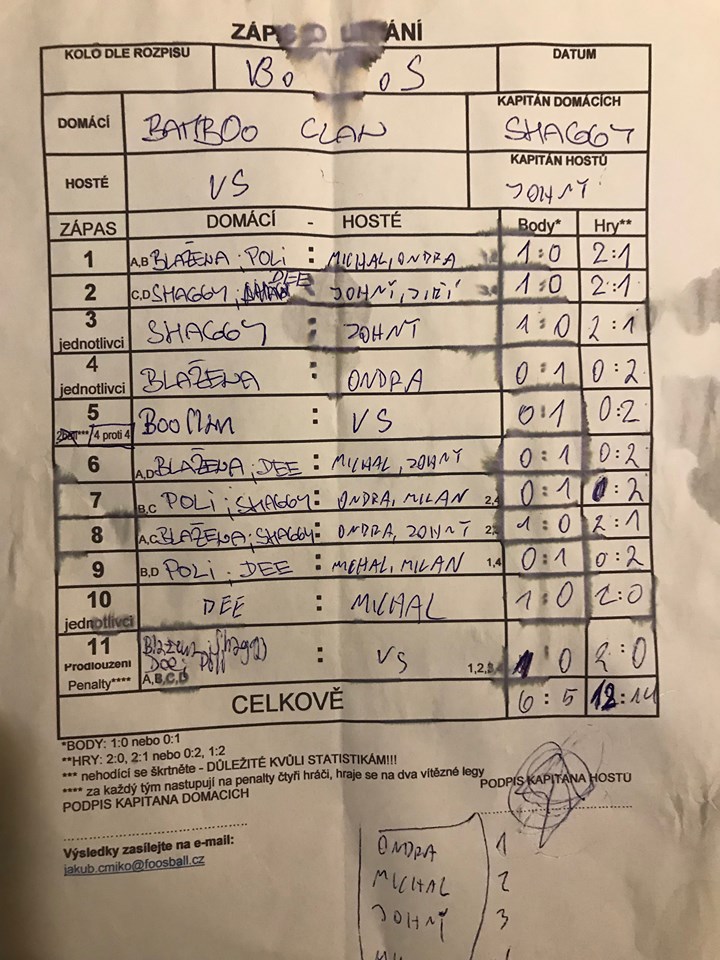 ZÁPIS O UTKÁNÍ
KOLO DLE ROZPISU
DATUM
DOMÁCÍ BAMBOO CLAN
KAPITÁN DOMÁCÍCH
SHAGGY
HOSTÉ VS
KAPITÁN HOSTŮ
JOHNY
ZÁPAS DOMÁCÍ - HOSTÉ Body* Hry**
1 A,B BLAŽENA, POLI : MICHAL, ONDRA 1:0 2:1
2 C,D SHAGGY, DEE : JOHNY, JIŘÍ 1:0 2:1
3 jednotlivci SHAGGY : JOHNY 1:0 2:1
4 jednotlivci BLAŽENA : ONDRA 0:1 0:2
5 4 proti 4 : VS 0:1 0:2
6 A,D BLAŽENA, DEE : MICHAL, JOHNY 0:1 0:2
7 B,C POLI, SHAGGY : ONDRA, MILAN 2,4 0:1 0:2
8 A,C BLAŽENA, SHAGGY : ONDRA, JOHNY 1:0 2:1
9 B,D POLI, DEE : MICHAL, MILAN 1,4 0:1 0:2
10 jednotlivci DEE : MICHAL 1:0 2:0
11 Prodloužení Penalty**** A,B,C,D : VS 1,2,3,4 1:0 2:0
CELKOVĚ 6:5 12:14
*BODY: 1:0 nebo 0:1
**HRY: 2:0, 2:1 nebo 0:2, 1:2
*** nehodící se škrtněte - DŮLEŽITÉ KVŮLI STATISTIKÁM!!!
**** za každý tým nastupují na penalty čtyři hráči, hraje se na dva vítězné legy
PODPIS KAPITÁNA DOMÁCÍCH
PODPIS KAPITÁNA HOSTŮ
Výsledky zasílejte na e-mail:
jakub.cmiko@foosball.cz
ONDRA 1
MICHAL 2
JOHNY 3